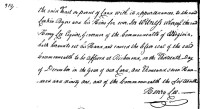 the said tract or parcel of Land with its appurtenances, to the said
and his Heirs forever. In Witness whereof the said
Henry Lee Esquire, Governor of the Commonwealth of Virginia,
hath hereunto set his Hand, and caused the lesser Seal of the said
Commonwealth to be affixed at Richmond, on the Thirteenth Day
of December in the year of our Lord, one Thousand seven Hundred
and ninety one, and of the Commonwealth the
Henry Lee